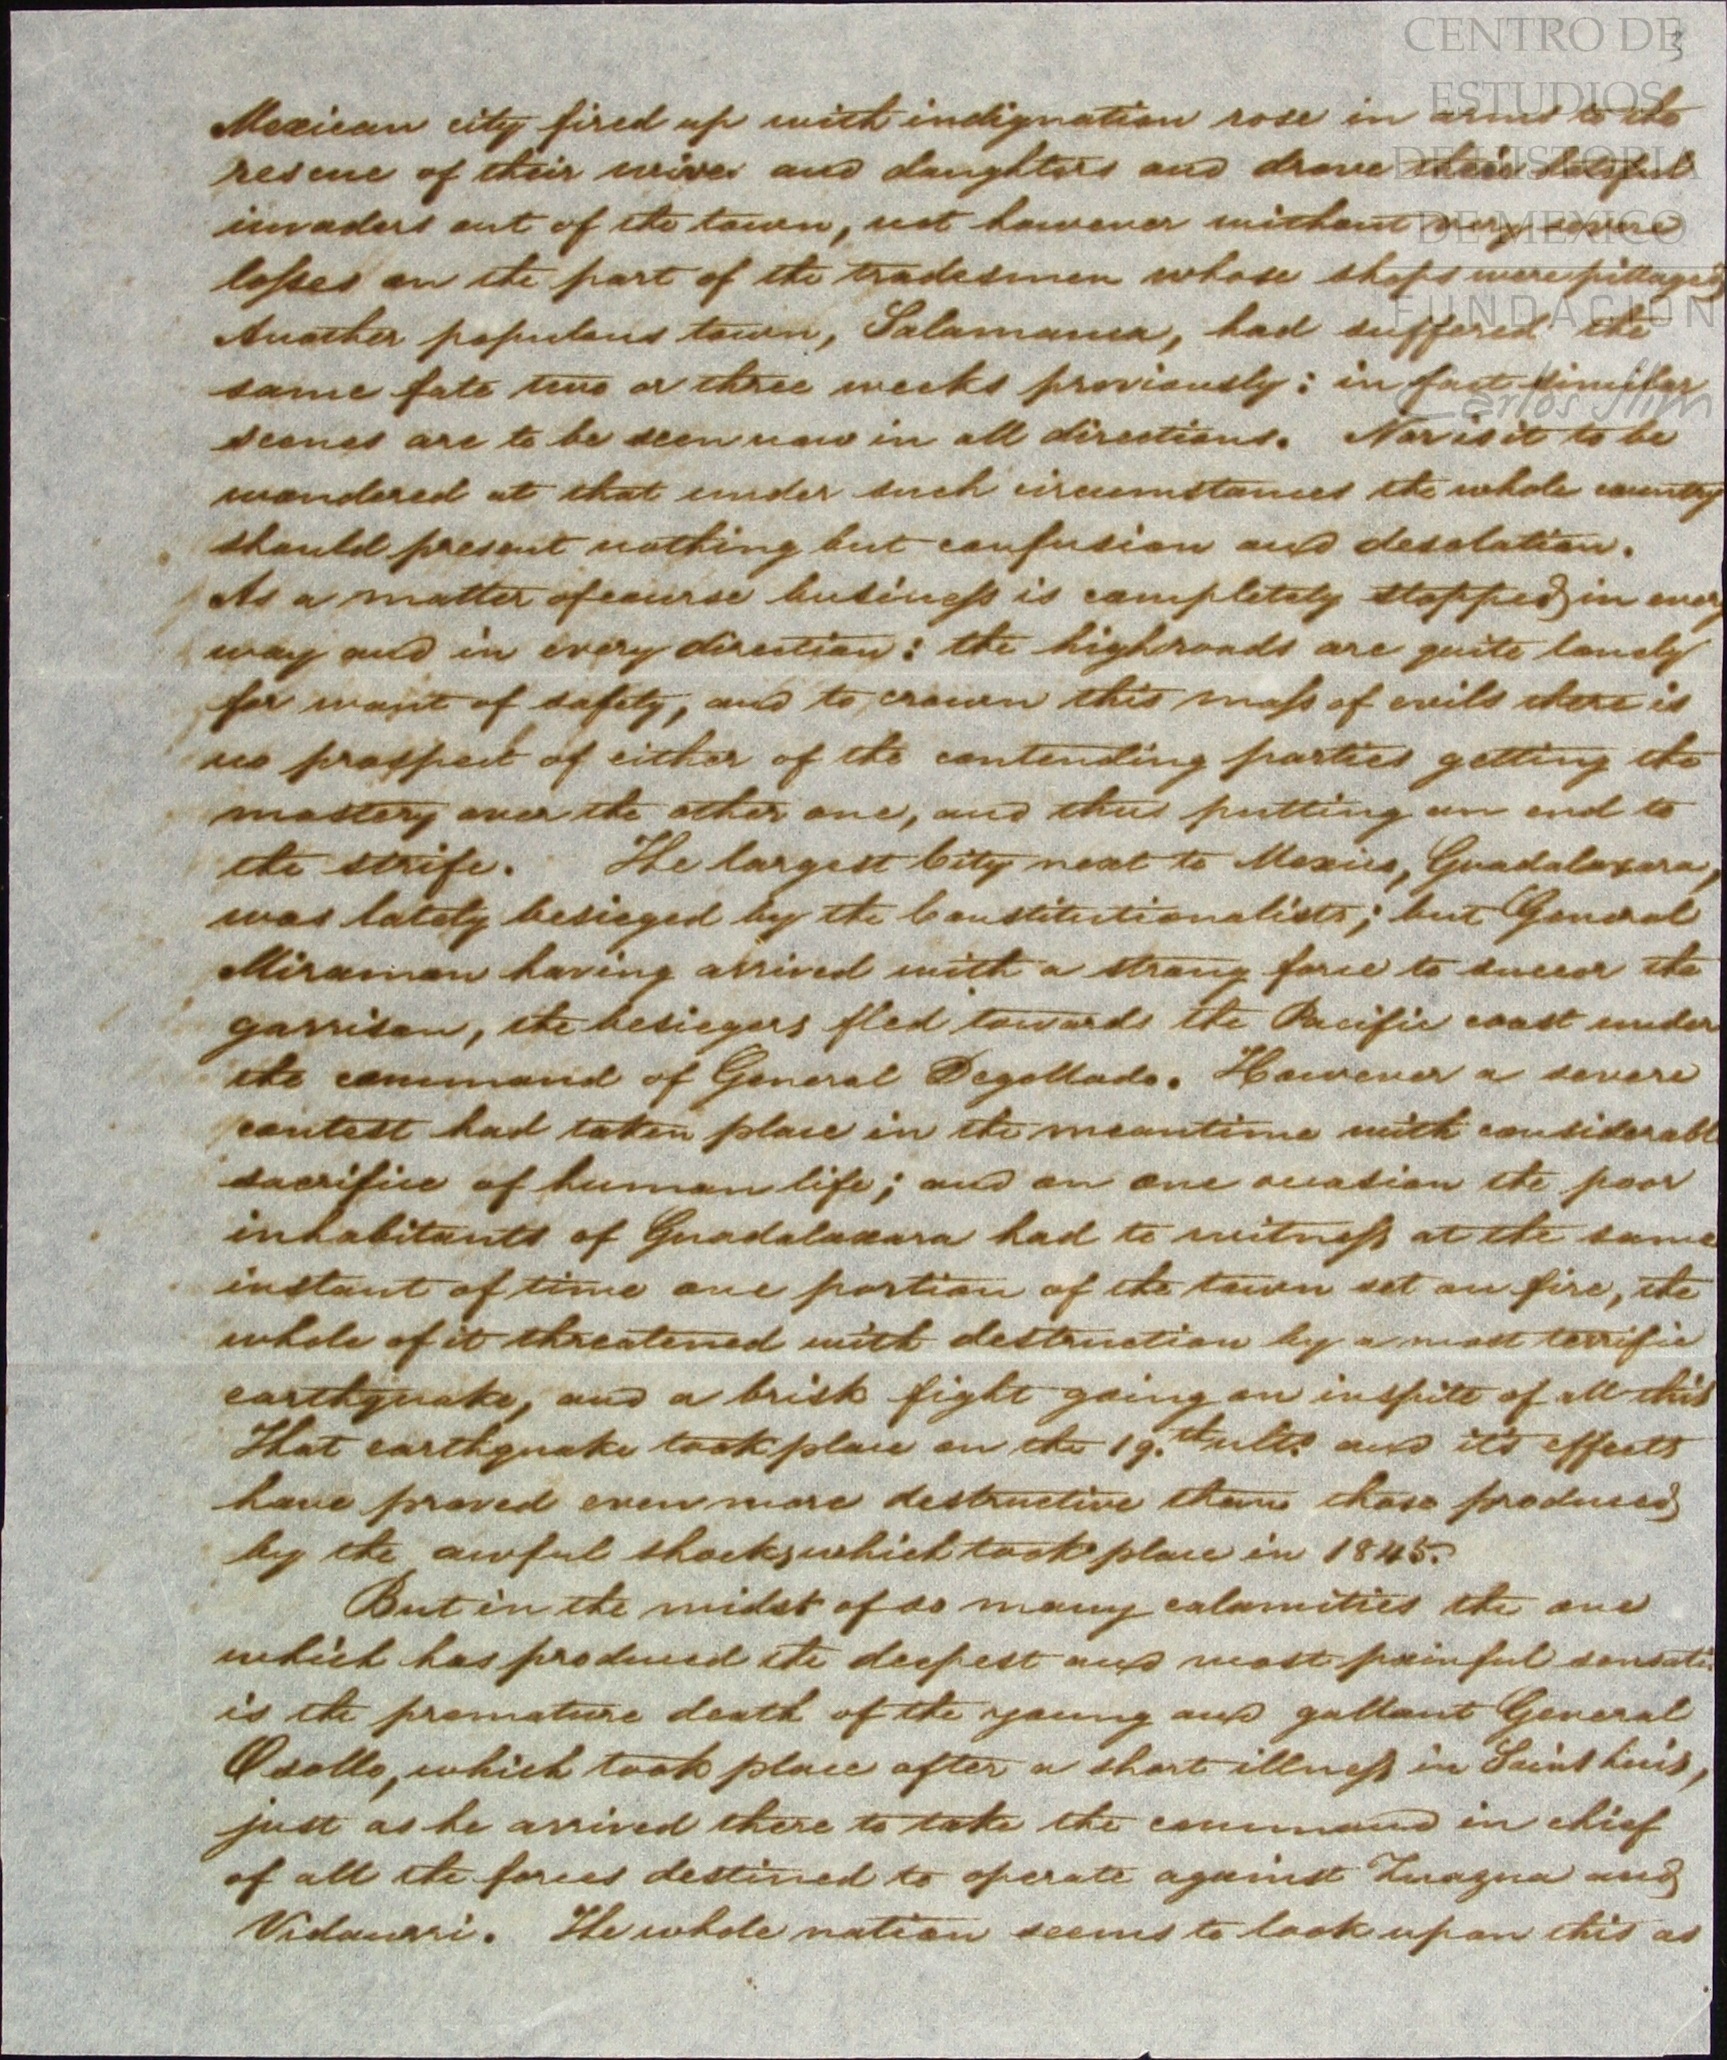 CENTRO DE
ESTUDIOS
DE HISTORIA
DE MEXICO
FUNDACION
Carlos Slim
3
Mexican city fired up with indignation rose in arms to the
rescue of their wives and daughters and drove their
invaders out of the town, not however without very severe
losses on the part of the tradesmen whose shops were pillaged.
Another populous town, Salamanca, had suffered the
same fate two or three weeks previously: in fact similar
scenes are to be seen now in all directions. Nor is it to be
wondered at that under such circumstances the whole country
should present nothing but confusion and desolation.
As a matter of course business is completely stopped in every
way and in every direction: the highroads are quite lonely
for want of safety, and to crown this mass of evils there is
no prospect of either of the contending parties getting the
mastery over the other one, and thus putting an end to
the strife. The largest City next to Mexico, Guadalaxara,
was lately besieged by the Constitutionalists; but General
Miramon having arrived with a strong force to succor the
garrison, the besiegers fled towards the Pacific coast under
the command of General Degollado. However a severe
contest had taken place in the meantime with considerabl
sacrifice of human life; and on one occasion the poor
inhabitants of Guadalaxara had to witness at the same
instant of time one portion of the town set on fire, the
whole of it threatened with destruction by a most terrific
earthquake, and a brisk fight going on inspite of all this
That earthquake took place on the 19.th ulto. and it's effects
have proved even more destructive than those produced
by the awful shocks which took place in 1845.
But in the midst of so many calamities the one
which has produced the deepest and most painful sensati
is the premature death of the young and gallant General
Osollo, which took place after a short illness in Saint Luis,
just as he arrived there to take the command in chief
of all the forces destined to operate against Zuazua and
Vidaurri. The whole nation seems to look upon this as